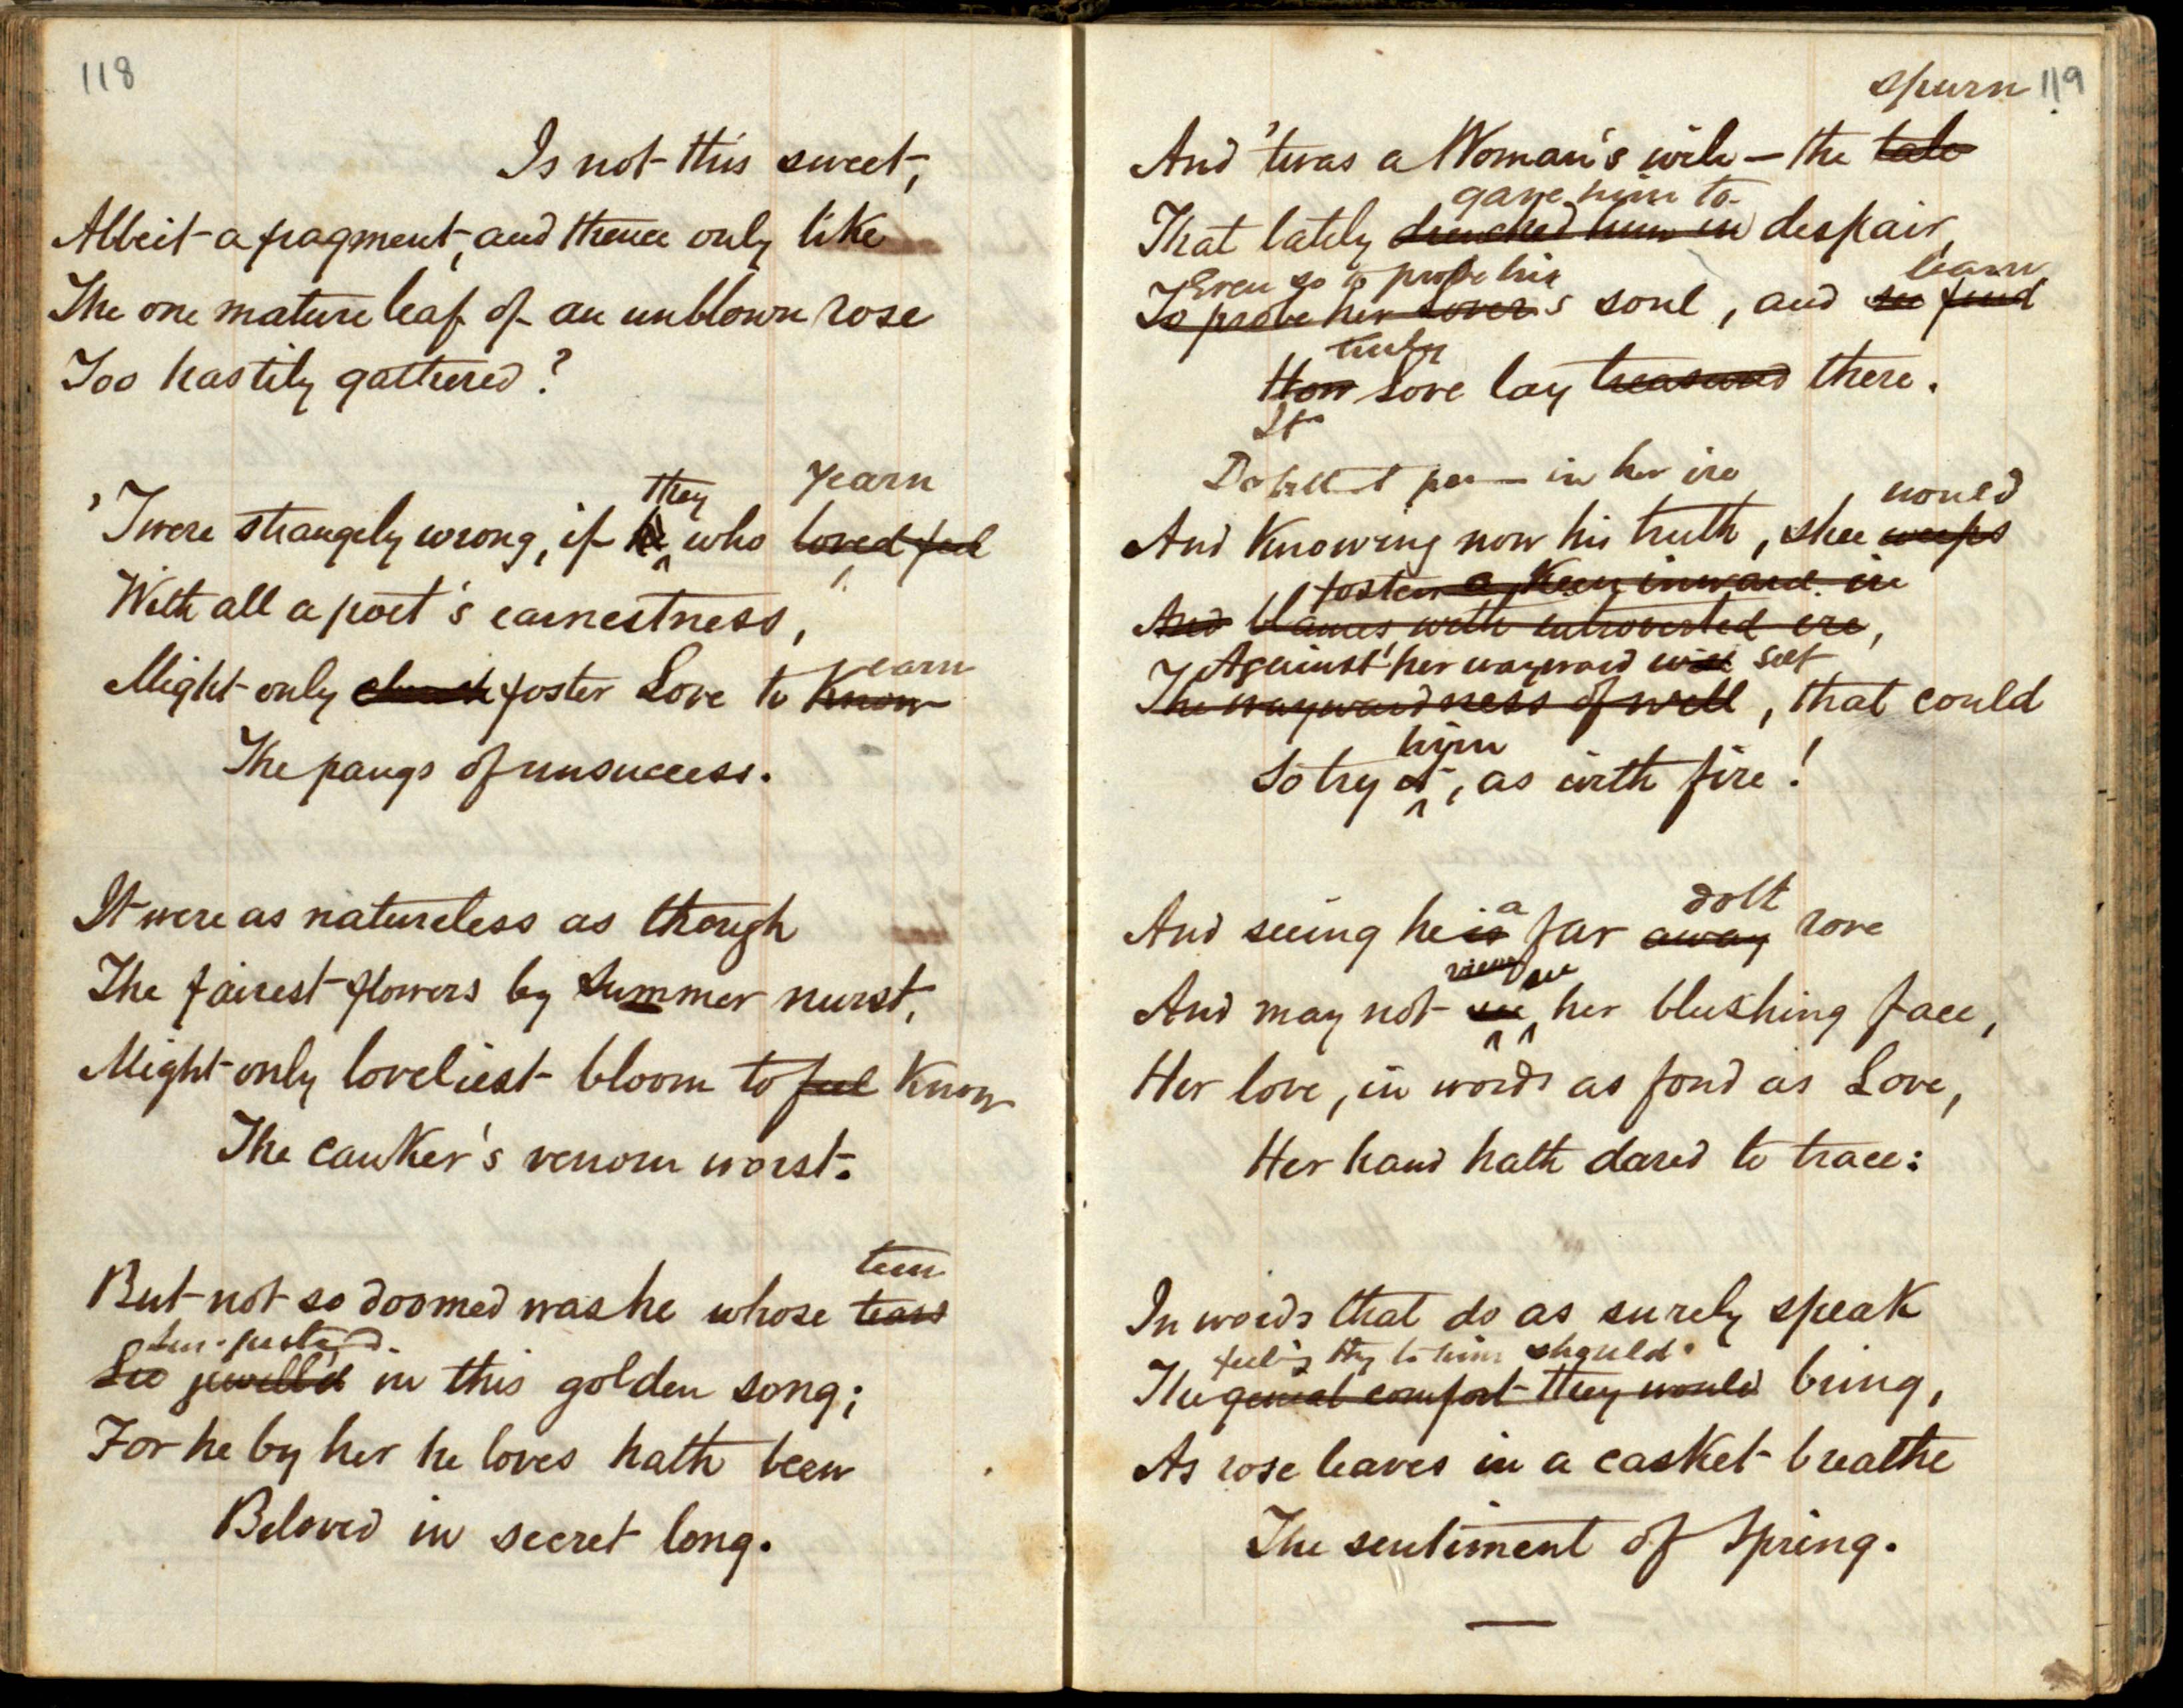 118
Is not this sweet,
Albeit a fragment, and thence only like
The one mature leaf of an unblown rose
Too hastily gathered?
they yearn
'Twere strangely wrong, if he who loved feel
With all a poet's earnestness,
learn
Might only foster Love to know
The pangs of unsuccess.
It were as natureless as though
The fairest flowers by Summer nurst,
Might only loveliest bloom to feel know
The canker's venom worst.
teen
But not so doomed was he whose tears
So jewell'd in this golden song;
For he by her he loves hath been
Beloved in secret long.
119
spurn
And 'twas a Woman's wile — the tale
gave him to
That lately drenched him in despair,
Even so to probe his learn
To probe her Lover's soul, and so find
truly
How Love lay treasured there.
in her ire
would
And knowing now his truth, she weeps
foster a keen inward ire
And blames with introverted ire,
Against her wayward will self
The waywardness of will, that could
him
So try it, as with fire!
a doth
And seeing he is far away rove
view see
And may not see her blushing face,
Her love, in words as fond as Love,
Her hand hath dared to trace:
In words that do as surely speak
feeling they to him should
The genial comfort they would bring,
As rose leaves in a casket breathe
The sentiment of Spring.